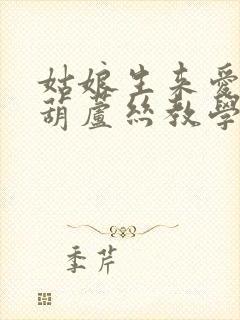 姑娘生来愛
葫蘆絲教學
季芹